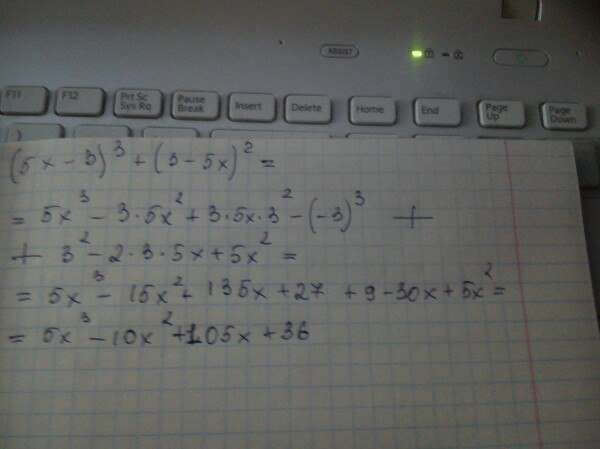 ASSIST
F11 F12 Prt Sc Sys Rq Pause Break Insert Delete Home End Page Up Page Down
)
(5x - 3)³ + (3 - 5x)² =
= 5x³ - 3·5x² + 3·5x·3² - (-3)³ +
+ 3² - 2·3·5x + 5x² =
= 5x³ - 15x² + 135x + 27 + 9 - 30x + 5x² =
= 5x³ - 10x² + 105x + 36